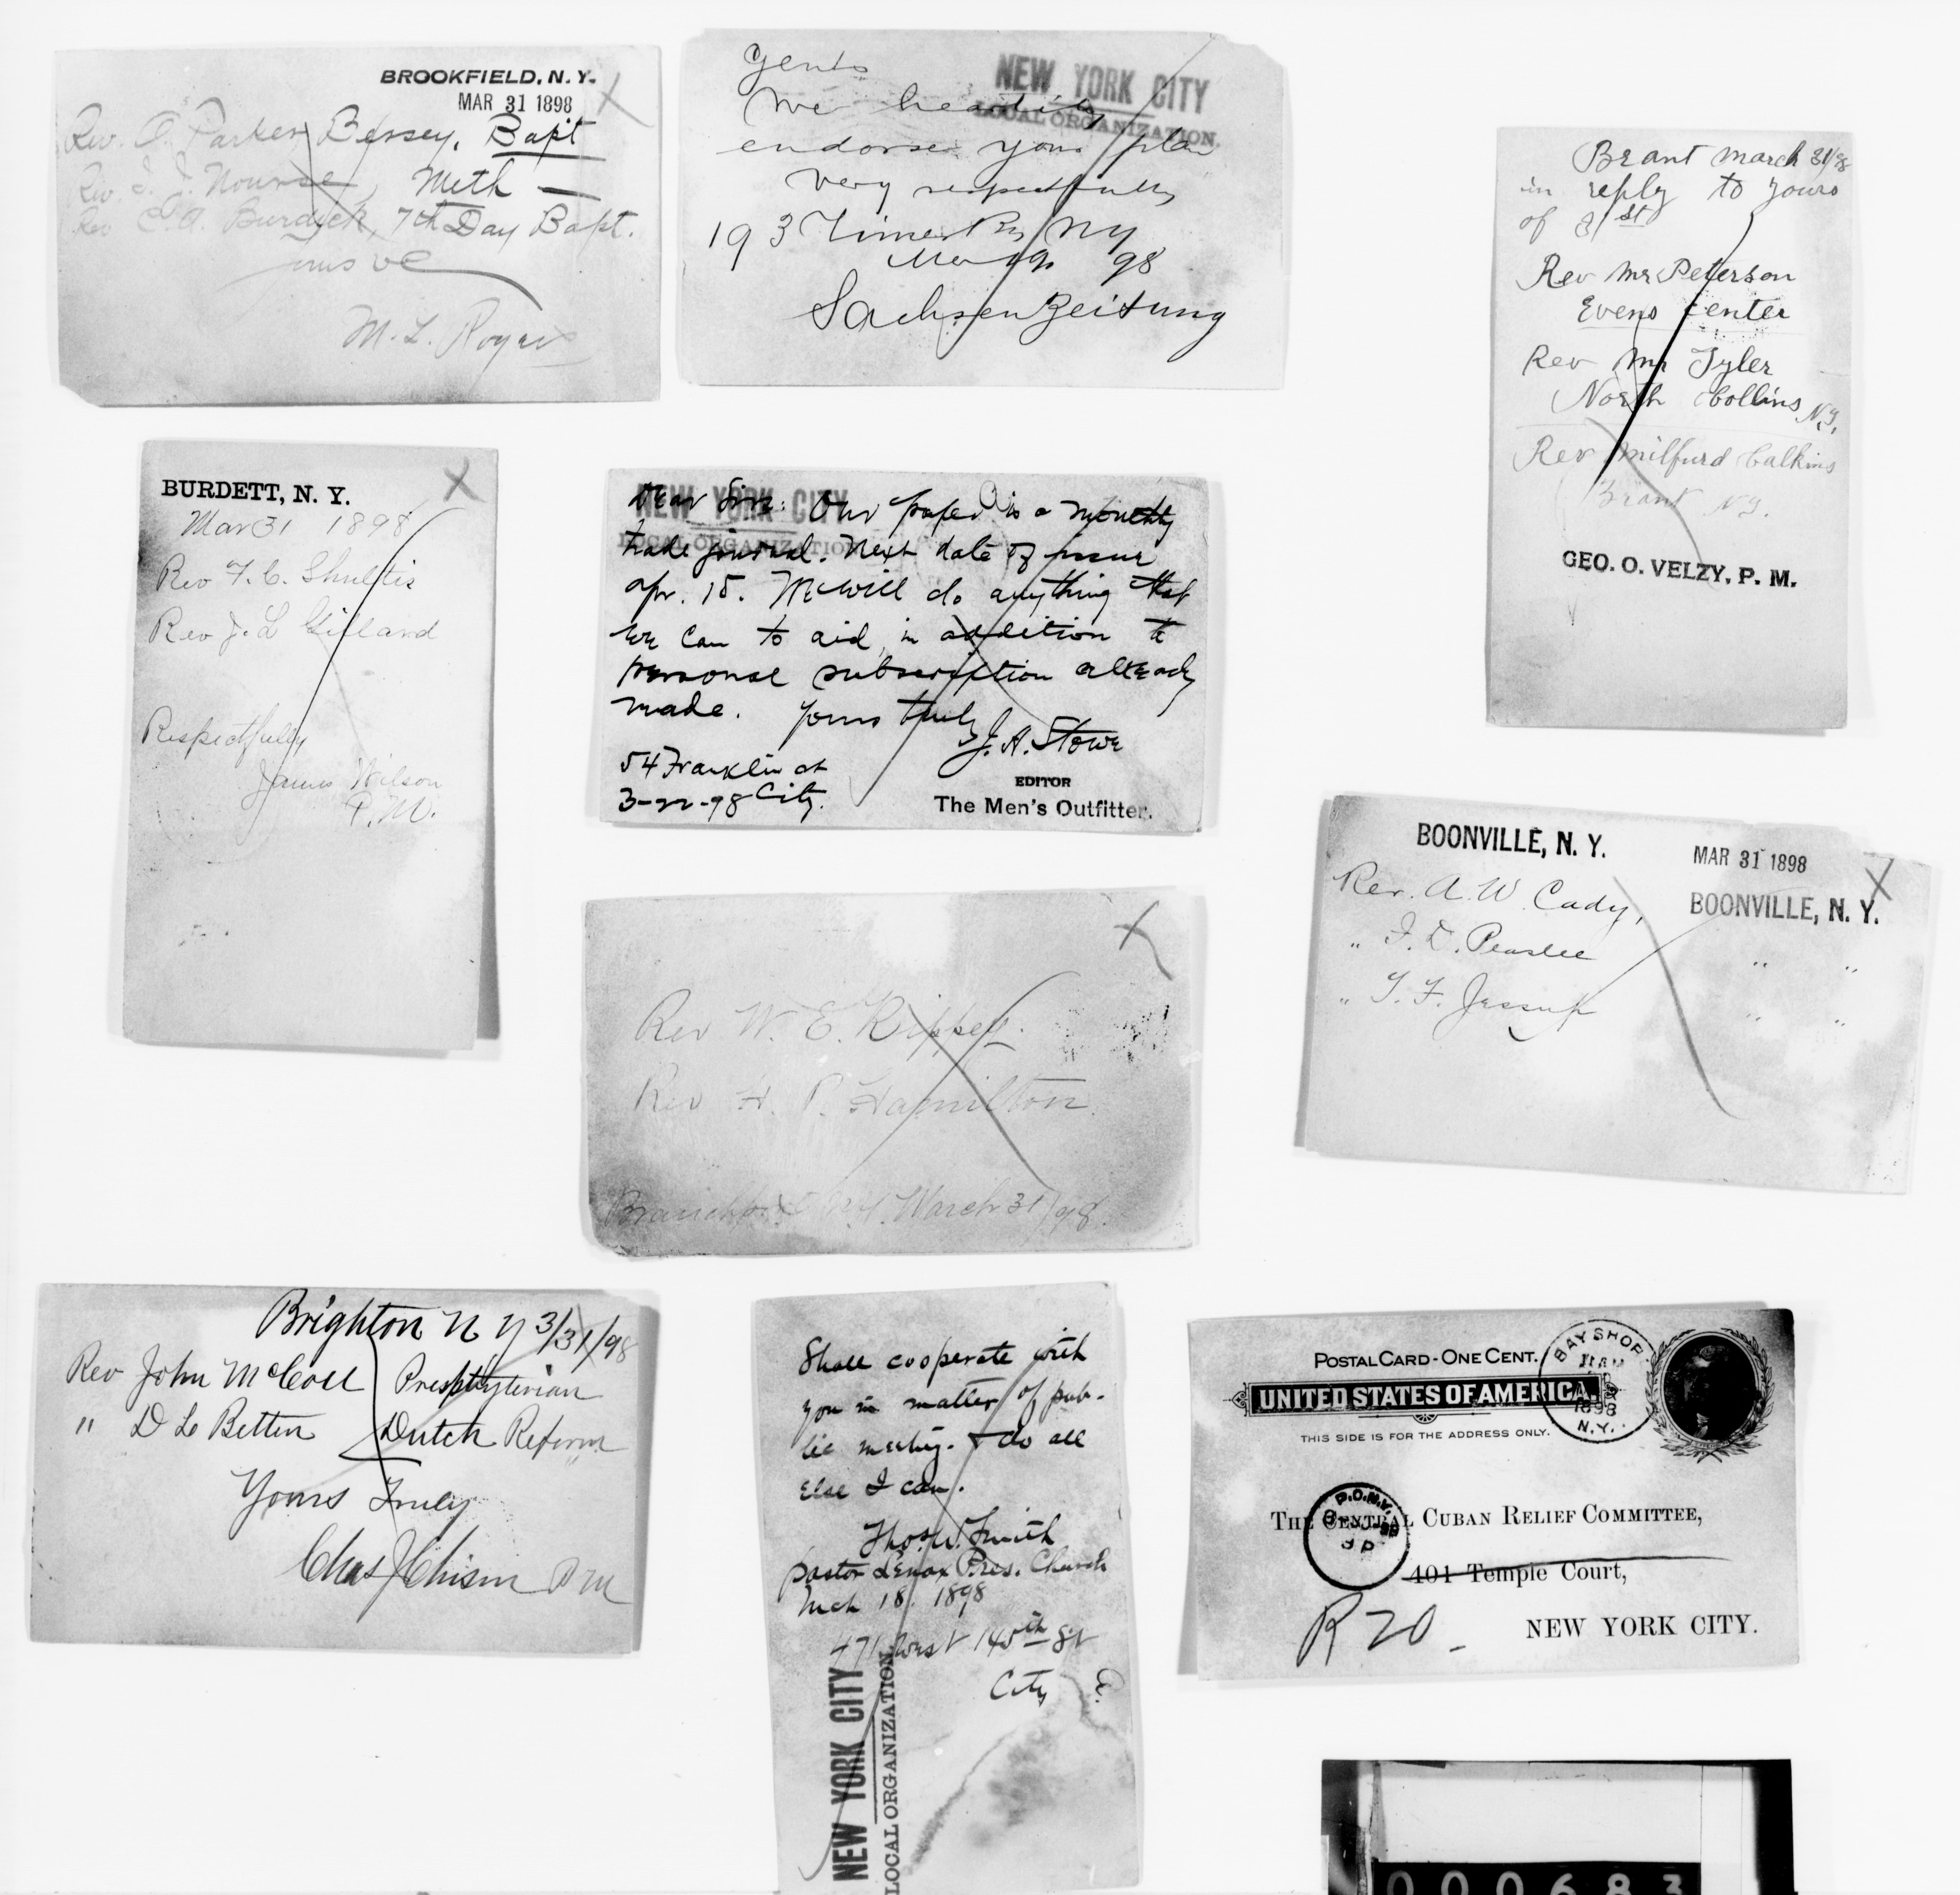 BROOKFIELD, N.Y.
MAR 31 1898
Rev. O. Parker Bessey, Bapt
Rev. I. J. Nourse, Meth —
Rev C.A. Burdick, 7th Day Bapt.
M. L. Rogers
NEW YORK CITY
LOCAL ORGANIZATION.
Gents
We heartily
endorse your plan
very respectfully
193 Times NY
98
Sachsen Zeitung
Brant March 31/98
in reply to yours
of 31st
Rev Mr Peterson
Evens Center
Rev Mr Tyler
North Collins N.Y.
Rev Milfurd Calkins
Brant N.Y.
GEO. O. VELZY, P. M.
BURDETT, N. Y.
Mar 31 1898
Rev F. C. Shultis
Rev J. L Gillard
Respectfully
James Wilson
P.M.
NEW YORK CITY
LOCAL ORGANIZATION
Dear Sirs: Our paper is a monthly
trade journal. Next date of issue
Apr. 15. We will do anything that
we can to aid, in addition to
personal subscription already
made. Yours truly
J. A. Stowe
54 Franklin st
3-22-98 City.
EDITOR
The Men's Outfitter.
BOONVILLE, N. Y.
MAR 31 1898
Rev. A. W. Cady, BOONVILLE, N. Y.
" I. D. Peaslee " "
" T. F. Jessup " "
Rev W. E. Rippey.
Rev H. P. Hamilton.
Branchport N.Y. March 31/98.
Brighton N Y 3/31/98
Rev John McColl Presbyterian
" D L Betten Dutch Reform
Yours Truly
Chas J Chism P M
Shall cooperate with
you in matter of pub-
lic meeting. & do all
else I can.
Thos. W. Smith
Pastor Lenox Pres. Church
Mch 18. 1898
471 West 145th St
City
NEW YORK CITY
LOCAL ORGANIZATION
POSTAL CARD - ONE CENT.
UNITED STATES OF AMERICA.
THIS SIDE IS FOR THE ADDRESS ONLY.
BAY SHORE
1898
N.Y.
P.O.N.Y.
THE CENTRAL CUBAN RELIEF COMMITTEE,
401 Temple Court,
R 20
NEW YORK CITY.
000683